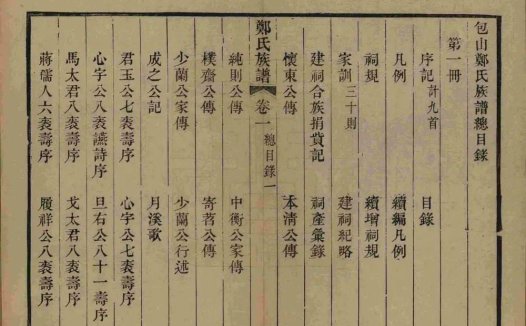 包山鄭氏族譜總目錄
第一冊
序記計九首 目錄
凡例 續編凡例
祠規 續增祠規
家訓三十則 建祠紀略
建祠合族捐貲記 祠產彙錄
懷東公傳 本清公傳
鄭氏族譜 卷一 總目錄一
純則公傳 中衡公家傳
樸齋公傳 寄茗公傳
少蘭公家傳 少蘭公行述
成之公記 月溪歌
君玉公七袠壽序 心字公七袠壽序
心字公八袠讌詩序 旦右公八十一壽序
馬太君八袠壽序 戈太君八袠壽序
蔣孺人六袠壽序 履祥公八袠壽序